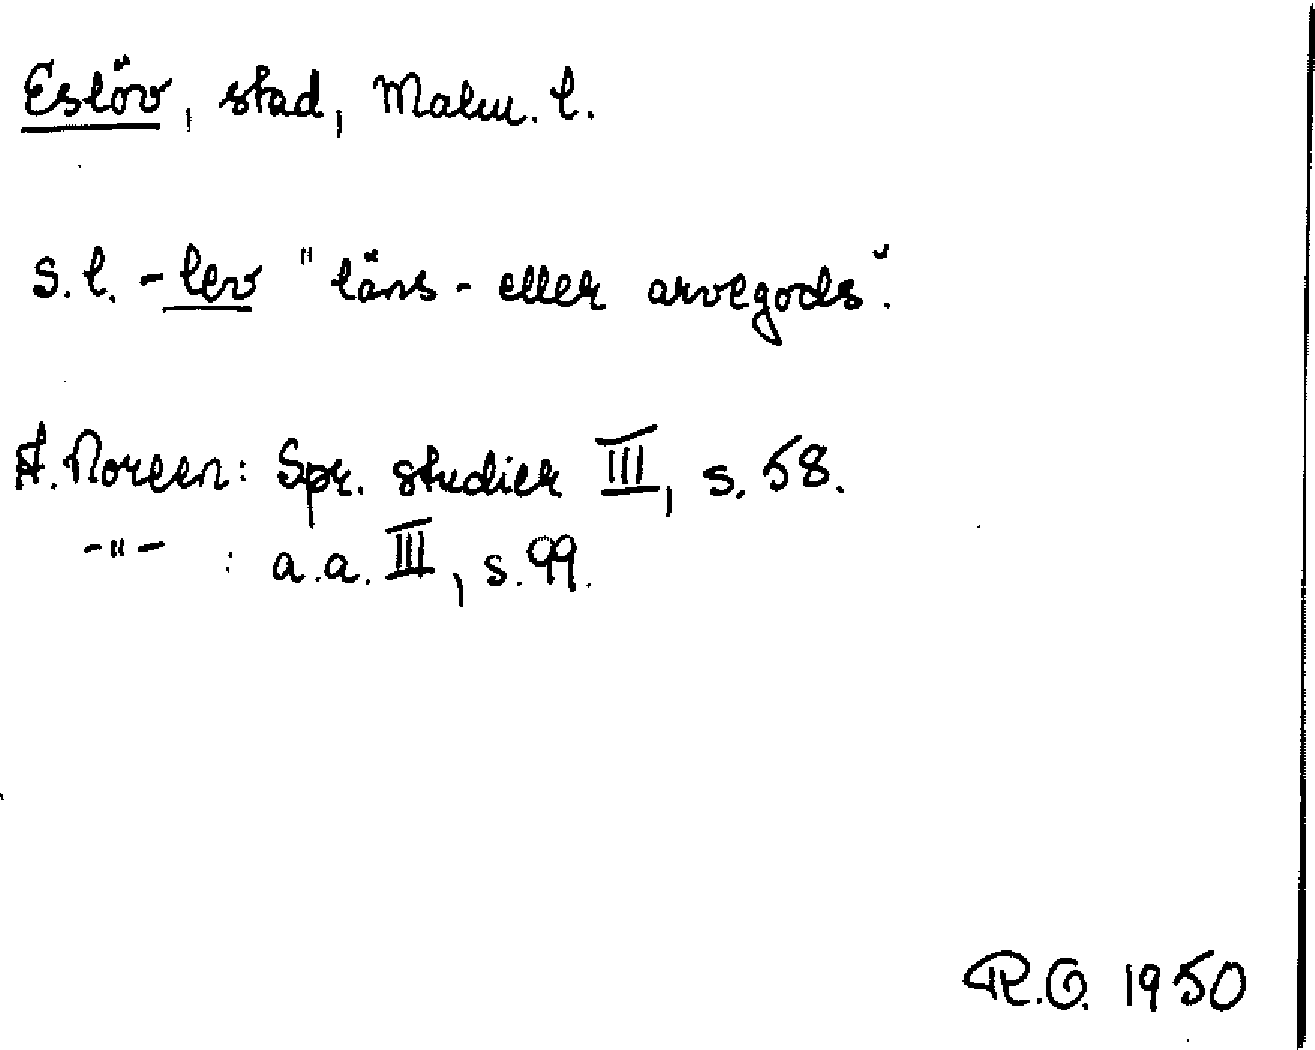 Eslöv, stad, Malm. l.
s.l. -lev "läns- eller arvegods".
A. Noreen: Spr. studier III, s. 58.
-"- : a.a. III, s. 99.
R.O. 1950